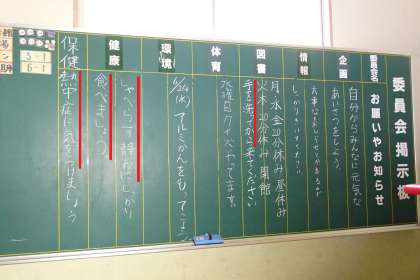 委員会掲示板
委員会名
お願いやお知らせ
企画
自分からみんなに元気な
あいさつをしよう。
情報
図書
月・水・金20分休み・昼休み
火・木20分休み 開館
手を洗ってから来てください
体育
水曜日クイズやってます。
環境
6/24(水) アルミかんをもってこよう
健康
しゃべらず静かにしっかり
食べましょう
保健
熱中症に気をつけましょう
5-1
6-1